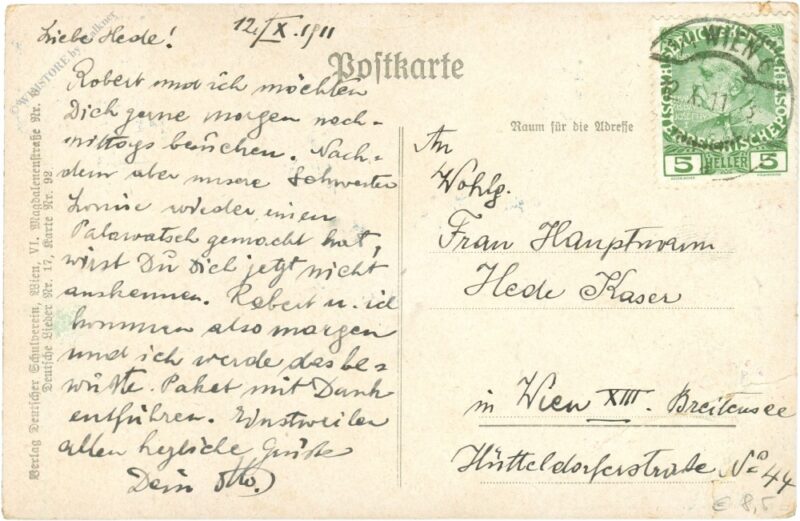 12./X. 1911
Liebe Hede!
Robert und ich möchten
Dich gerne morgen nach-
mittags besuchen. Nach-
dem aber unsere Schwester
Louise wieder einen
Palawatsch gemacht hat,
wirst Du Dich jetzt nicht
auskennen. Robert u. ich
kommen also morgen
und ich werde das be-
wußte Paket mit Dank
entführen. Einstweilen
allen herzliche Grüße
Dein Otto.
Postkarte
Raum für die Adresse
An
Wohlg.
Frau Hauptmann
Hede Kaser
in Wien XIII. Breitensee
Hütteldorferstraße No 44
WIEN
5 HELLER 5
Verlag Deutscher Schulverein, Wien, VI. Magdalenenstraße Nr. 6
Deutsche Lieder Nr. 17, Karte Nr. 92
© WEBSTORE by Falkner
€ 8,5